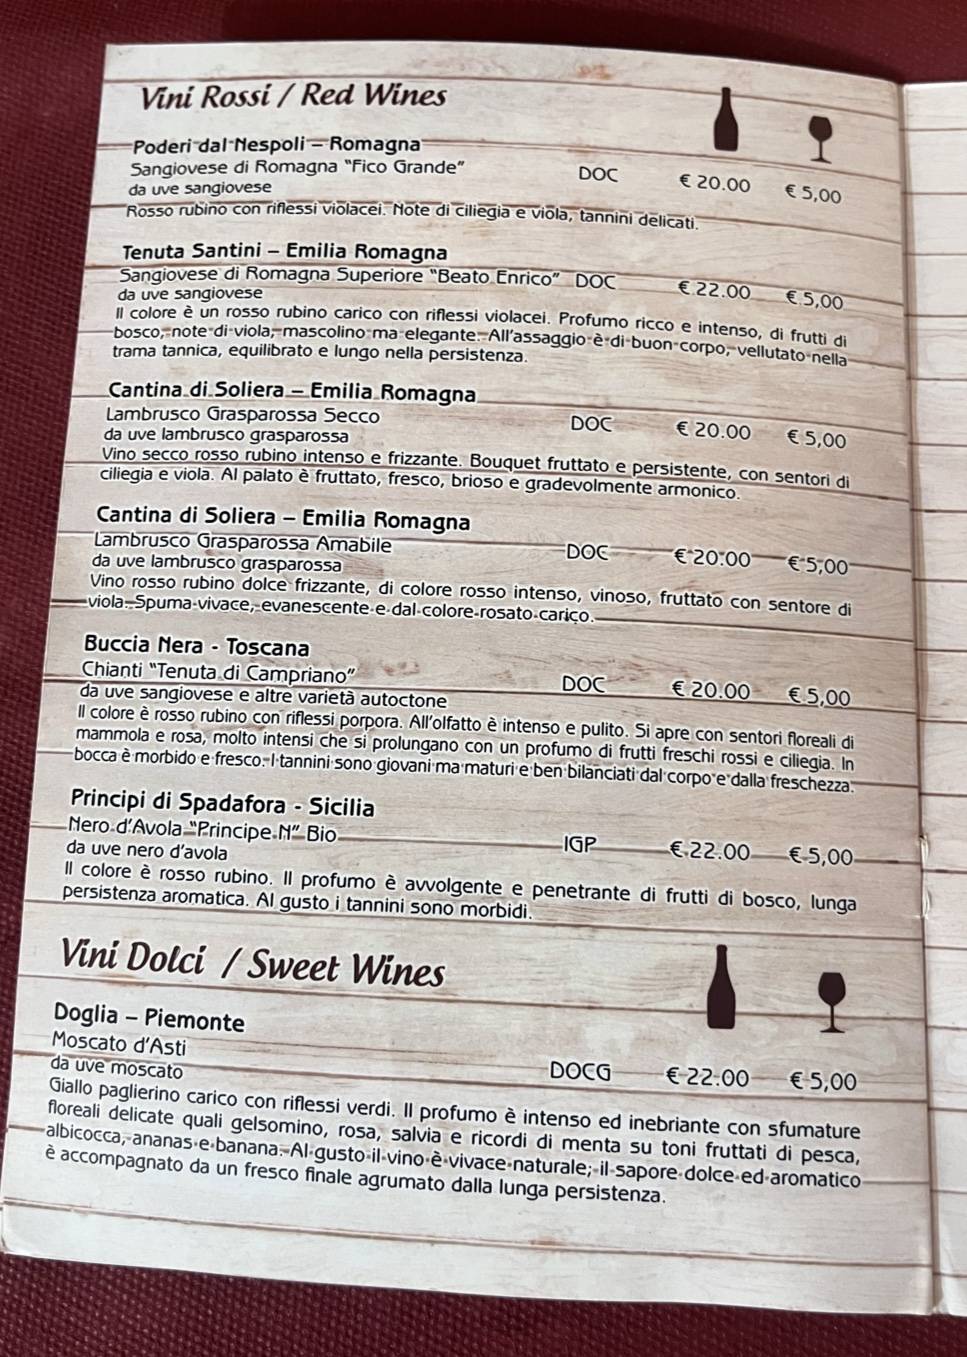 Vini Rossi / Red Wines
Poderi dal Nespoli – Romagna
Sangiovese di Romagna "Fico Grande" DOC € 20.00 € 5,00
da uve sangiovese
Rosso rubino con riflessi violacei. Note di ciliegia e viola, tannini delicati.
Tenuta Santini – Emilia Romagna
Sangiovese di Romagna Superiore "Beato Enrico" DOC € 22.00 € 5,00
da uve sangiovese
Il colore è un rosso rubino carico con riflessi violacei. Profumo ricco e intenso, di frutti di
bosco, note di viola, mascolino ma elegante. All'assaggio è di buon corpo, vellutato nella
trama tannica, equilibrato e lungo nella persistenza.
Cantina di Soliera – Emilia Romagna
Lambrusco Grasparossa Secco DOC € 20.00 € 5,00
da uve lambrusco grasparossa
Vino secco rosso rubino intenso e frizzante. Bouquet fruttato e persistente, con sentori di
ciliegia e viola. Al palato è fruttato, fresco, brioso e gradevolmente armonico.
Cantina di Soliera – Emilia Romagna
Lambrusco Grasparossa Amabile DOC € 20.00 € 5,00
da uve lambrusco grasparossa
Vino rosso rubino dolce frizzante, di colore rosso intenso, vinoso, fruttato con sentore di
viola. Spuma vivace, evanescente e dal colore rosato carico.
Buccia Nera - Toscana
Chianti "Tenuta di Campriano" DOC € 20.00 € 5,00
da uve sangiovese e altre varietà autoctone
Il colore è rosso rubino con riflessi porpora. All'olfatto è intenso e pulito. Si apre con sentori floreali di
mammola e rosa, molto intensi che si prolungano con un profumo di frutti freschi rossi e ciliegia. In
bocca è morbido e fresco. I tannini sono giovani ma maturi e ben bilanciati dal corpo e dalla freschezza.
Principi di Spadafora - Sicilia
Nero d'Avola "Principe N" Bio IGP € 22.00 € 5,00
da uve nero d'avola
Il colore è rosso rubino. Il profumo è avvolgente e penetrante di frutti di bosco, lunga
persistenza aromatica. Al gusto i tannini sono morbidi.
Vini Dolci / Sweet Wines
Doglia – Piemonte
Moscato d'Asti DOCG € 22.00 € 5,00
da uve moscato
Giallo paglierino carico con riflessi verdi. Il profumo è intenso ed inebriante con sfumature
floreali delicate quali gelsomino, rosa, salvia e ricordi di menta su toni fruttati di pesca,
albicocca, ananas e banana. Al gusto il vino è vivace naturale; il sapore dolce ed aromatico
è accompagnato da un fresco finale agrumato dalla lunga persistenza.